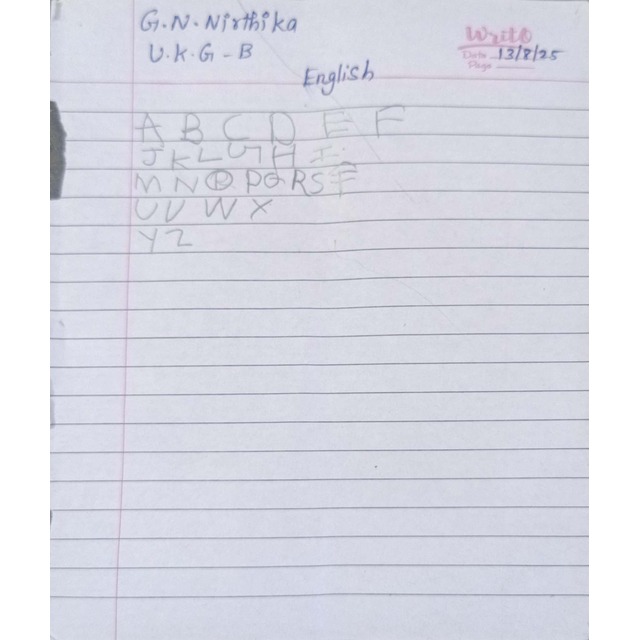 G.N.Nirthika
Write
U.K.G-B
Date 13/8/25
Page
English
A B C D E F
J K L G H I
M N O P Q R S F
U V W X
Y Z